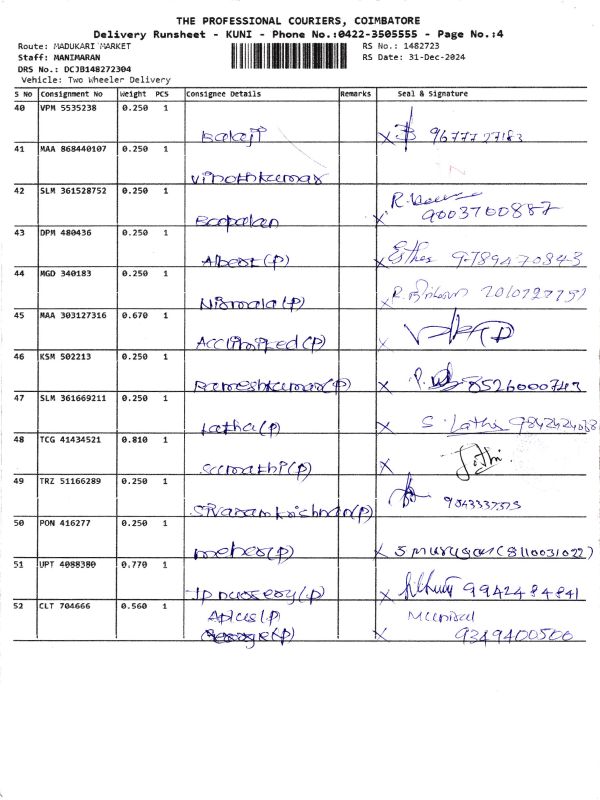 THE PROFESSIONAL COURIERS, COIMBATORE
Delivery Runsheet - KUNI - Phone No.:0422-3505555 - Page No.:4
Route: MADUKARI MARKET RS No.: 1482723
Staff: MANIMARAN RS Date: 31-Dec-2024
DRS No.: DCJB148272304
Vehicle: Two Wheeler Delivery
S No Consignment No Weight PCS Consignee Details Remarks Seal & Signature
40 VPM 5535238 0.250 1
Balaji X 9677727183
41 MAA 868440107 0.250 1
Vinothkumar
42 SLM 361528752 0.250 1
X 9003760887
43 DPM 480436 0.250 1
Albert (P) X Esther 9789470843
44 MGD 340183 0.250 1
Nirmala (P) R.
45 MAA 303127316 0.670 1
X
46 KSM 502213 0.250 1
Rameshkumar (P) X 8526000747
47 SLM 361669211 0.250 1
Latha (P) X S. Latha
48 TCG 41434521 0.810 1
Sumathi (P) X Jothi
49 TRZ 51166289 0.250 1
Sivaramkrishnan (P)
50 PON 416277 0.250 1
meher (P) X S murugan (8110031022)
51 UPT 4088380 0.770 1
JP nursery (P) X 9942484841
52 CLT 704666 0.560 1
Aplus (P)
X 9349400500